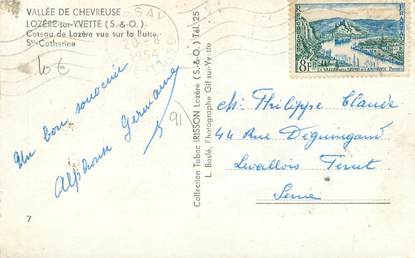 VALLÉE DE CHEVREUSE
LOZÈRE-sur-YVETTE (S.-&-O.)
Coteau de Lozère vue sur la Butte
Ste-Catherine
10 €
Un bon souvenir
Alphonse Germaine
91
7
Collection Tabac IRISSON Lozère (S.-&-O.) Tél. 25
L. Baslé, Photographe Gif sur-Yvette
8F
Mr Philippe Claude
44 Rue Deguingand
Levallois Perret
Seine